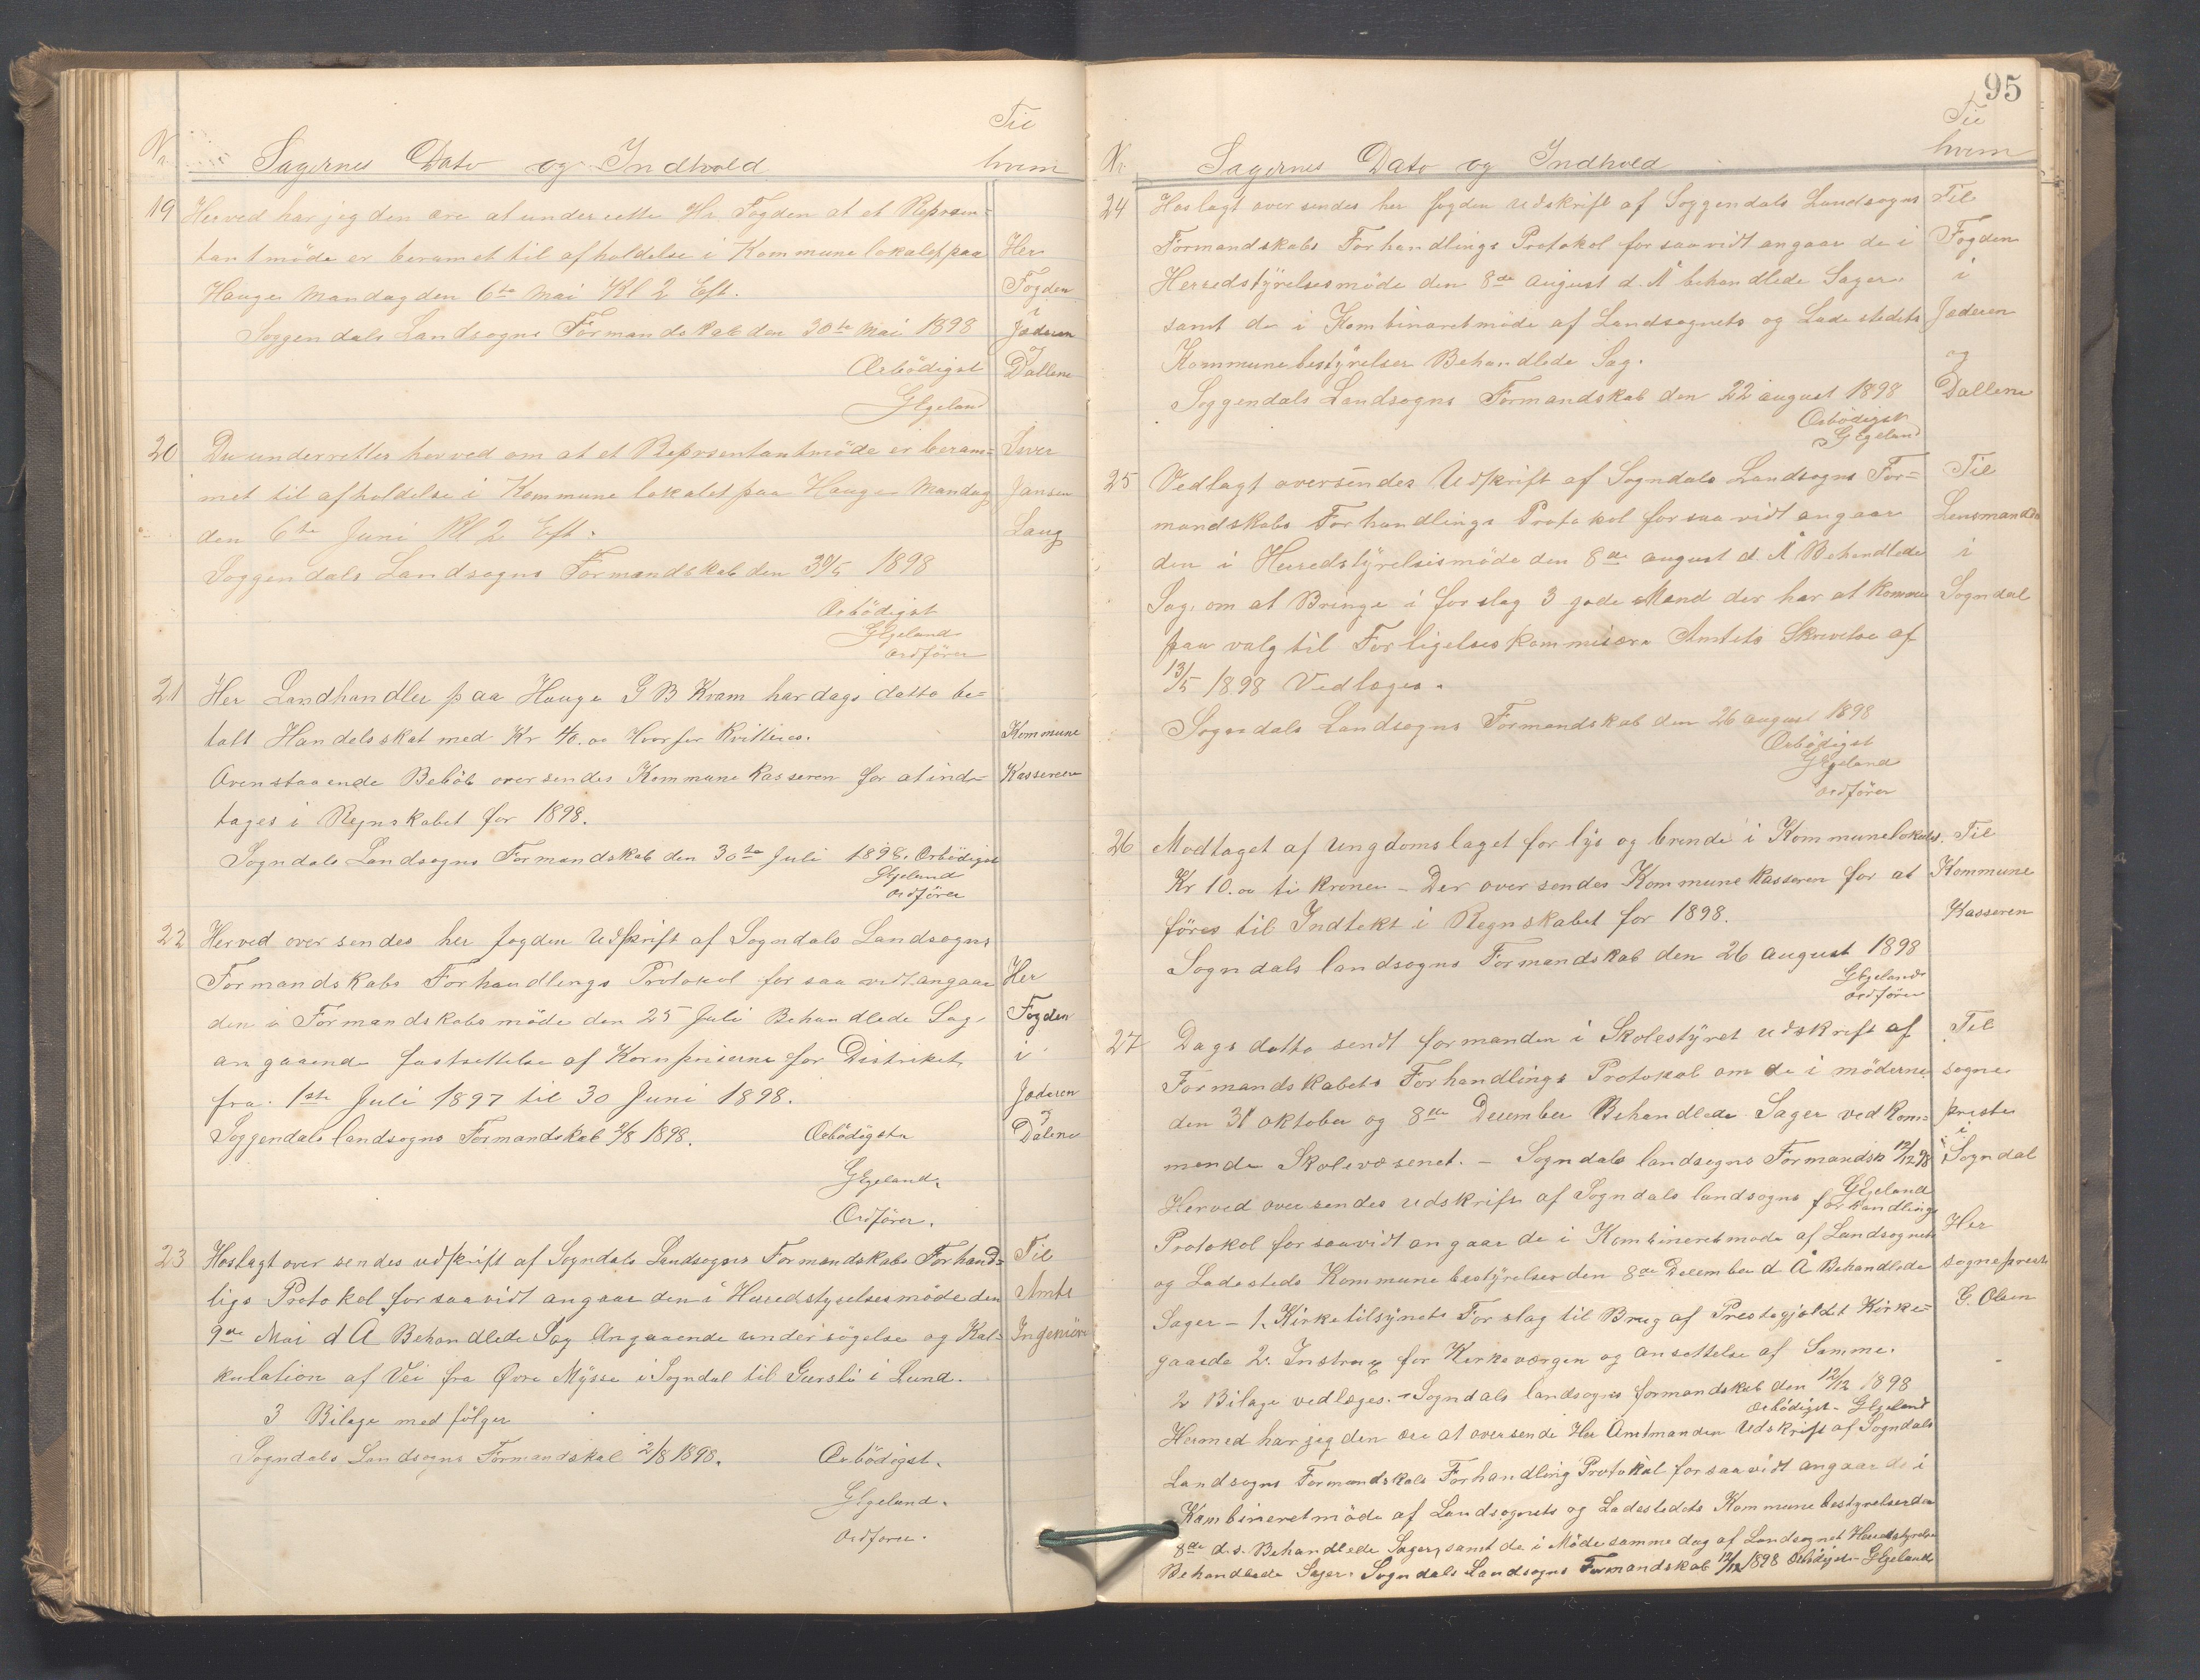 Til
No Sagernes Dato og Indhold hvem
19 Herved har jeg den ære at underrette Hr Fogden at et Reprsen=
tantmöde er beramet til afholdelse i Kommunelokalet paa Her
Hauge Mandag den 6te Mai Kl 2 Eft. Fogden
i
Soggendals Landsogns Formandskab den 30te Mai 1898 Jæderen
og
Ærbödigst Dallene
GEgeland
20 De underrettes herved om at et Reprsentantmöde er beram= Siver
met til afholdelse i Kommunelokalet paa Hauge Mandag Jansen
den 6te Juni Kl 2 Eft. Laug
Soggendals Landsogns Formandskab den 30/5 1898
Ærbödigst
GEgeland
ordförer
21 Her Landhandler paa Hauge G B Kram har dags datto be=
talt Handelsskat med Kr 40.00 Hvorfor Kvitteres. Kommune
Ovenstaaende Belöb oversendes Kommunekasseren for at ind= Kasseren
tages i Regnskabet for 1898.
Sogndals Landsogns Formandskab den 30te Juli 1898. Ærbödigst
GEgeland
ordförer
22 Herved oversendes her fogden Udskrift af Sogndals Landsogns
Formandskabs Forhandlings Protokol for saa vidt angaar Her
den i Formandskabsmöde den 25 Juli Behandlede Sag, Fogden
angaaende fastsettelse af Kornpriserne for Distriket, i
fra 1ste Juli 1897 til 30 Juni 1898. Jæderen
og
Soggendals landsogns Formandskab 2/8 1898. Ærbödigste Dalene
GEgeland,
Ordförer.
23 Hoslagt oversendes udskrift af Sogndals Landsogns Formandskabs Forhand= Til
ligs Protokol for saavidt angaar den i Herredstyrelsesmöde den Amts
9de Mai d Å Behandlede Sag Angaaende undersögelse og Kal= Ingeniören
kulation af Vei fra Øvre Mysse i Sogndal til Gursli i Lund.
3 Bilage medfölger
Sogndals Landsogns Formandskab 2/8 1898. Ærbödigst.
GEgeland.
Ordförer.
95
Til
No Sagernes Dato og Indhold hvem
24 Hoslagt oversendes her fogden Udskrift af Soggendals Landsogns Til
Formandskabs Forhandlings Protokol for saavidt angaar de i Fogden
Herredstyrelsesmöde den 8de august d. Å behandlede Sager. i
samt de i Kombineretmöde af Landsognets og Ladestedets Jæderen
Kommunebestyrelser Behandlede Sag. og
Soggendals Landsogns Formandskab den 22 august 1898 Dallene
Ærbödigst
GEgeland
25 Vedlagt oversendes Udskrift af Sogndals Landsogns For= Til
mandskabs Forhandlings Protokol forsaavidt angaar Lensmanden
den i Herredstyrelsesmöde den 8de august d. Å Behandlede i
Sag, om at Bringe i forslag 3 gode Mænd der har at komme Sogndal
paa valg til Forligelseskommisære Amtets Skrivelse af
13/5 1898 Vedlæges.
Sogndals Landsogns Formandskab den 26 august 1898
Ærbödigst
GEgeland
ordförer
26 Modtaget af Ungdomslaget for lys og brende i Kommunelokalet. Til
Kr 10.00 ti kroner - Der oversendes Kommunekasseren for at Kommune
föres til Indtekt i Regnskabet for 1898. Kasseren
Sogndals landsogns Formandskab den 26 august 1898
GEgeland
ordförer
27 Dags datto sendt formanden i Skolestyret udskrift af Til
Formandskabets Forhandlings Protokol om de i möderne sogne
den 31 oktober og 8de December Behandlede Sager vedkom= prest
i
mende Skolevæsenet. - Sogndals landsogns Formandsk 12/12 98 Sogndal
GEgeland
Herved oversendes udskrift af Sogndals landsogns forhandlings
Protokol forsaavidt angaar de i Kombineretmöde af Landsognets Her
og Ladesteds Kommunebestyrelser den 8de December d Å Behandlede sogneprest
Sager - 1. Kirketilsynets Forslag til Brug af Prestegjeldet Kirke= G. Olsen
gaarde 2. Instrux for Kirkeværgen og ansettelse af Samme.
2 Bilage vedlæges. - Sogndals landsogns formandskab den 12/12 1898
Ærbödigst - GEgeland
Hermed har jeg den ære at oversende Her Amtmanden Udskrift af Sogndals
Landsogns Formandskabs Forhandling Protokol forsaavidt angaar de i
Kombineretmöde af Landsognets og Ladestedets Kommunebestyrelser den
8de d.s. Behandlede Sager, samt de i Möde samme dag af Landsognet Herredstyrelse
Behandlede Sager. Sogndals Landsogns Formandskab 12/12 1898 Ærbödigst - GEgeland